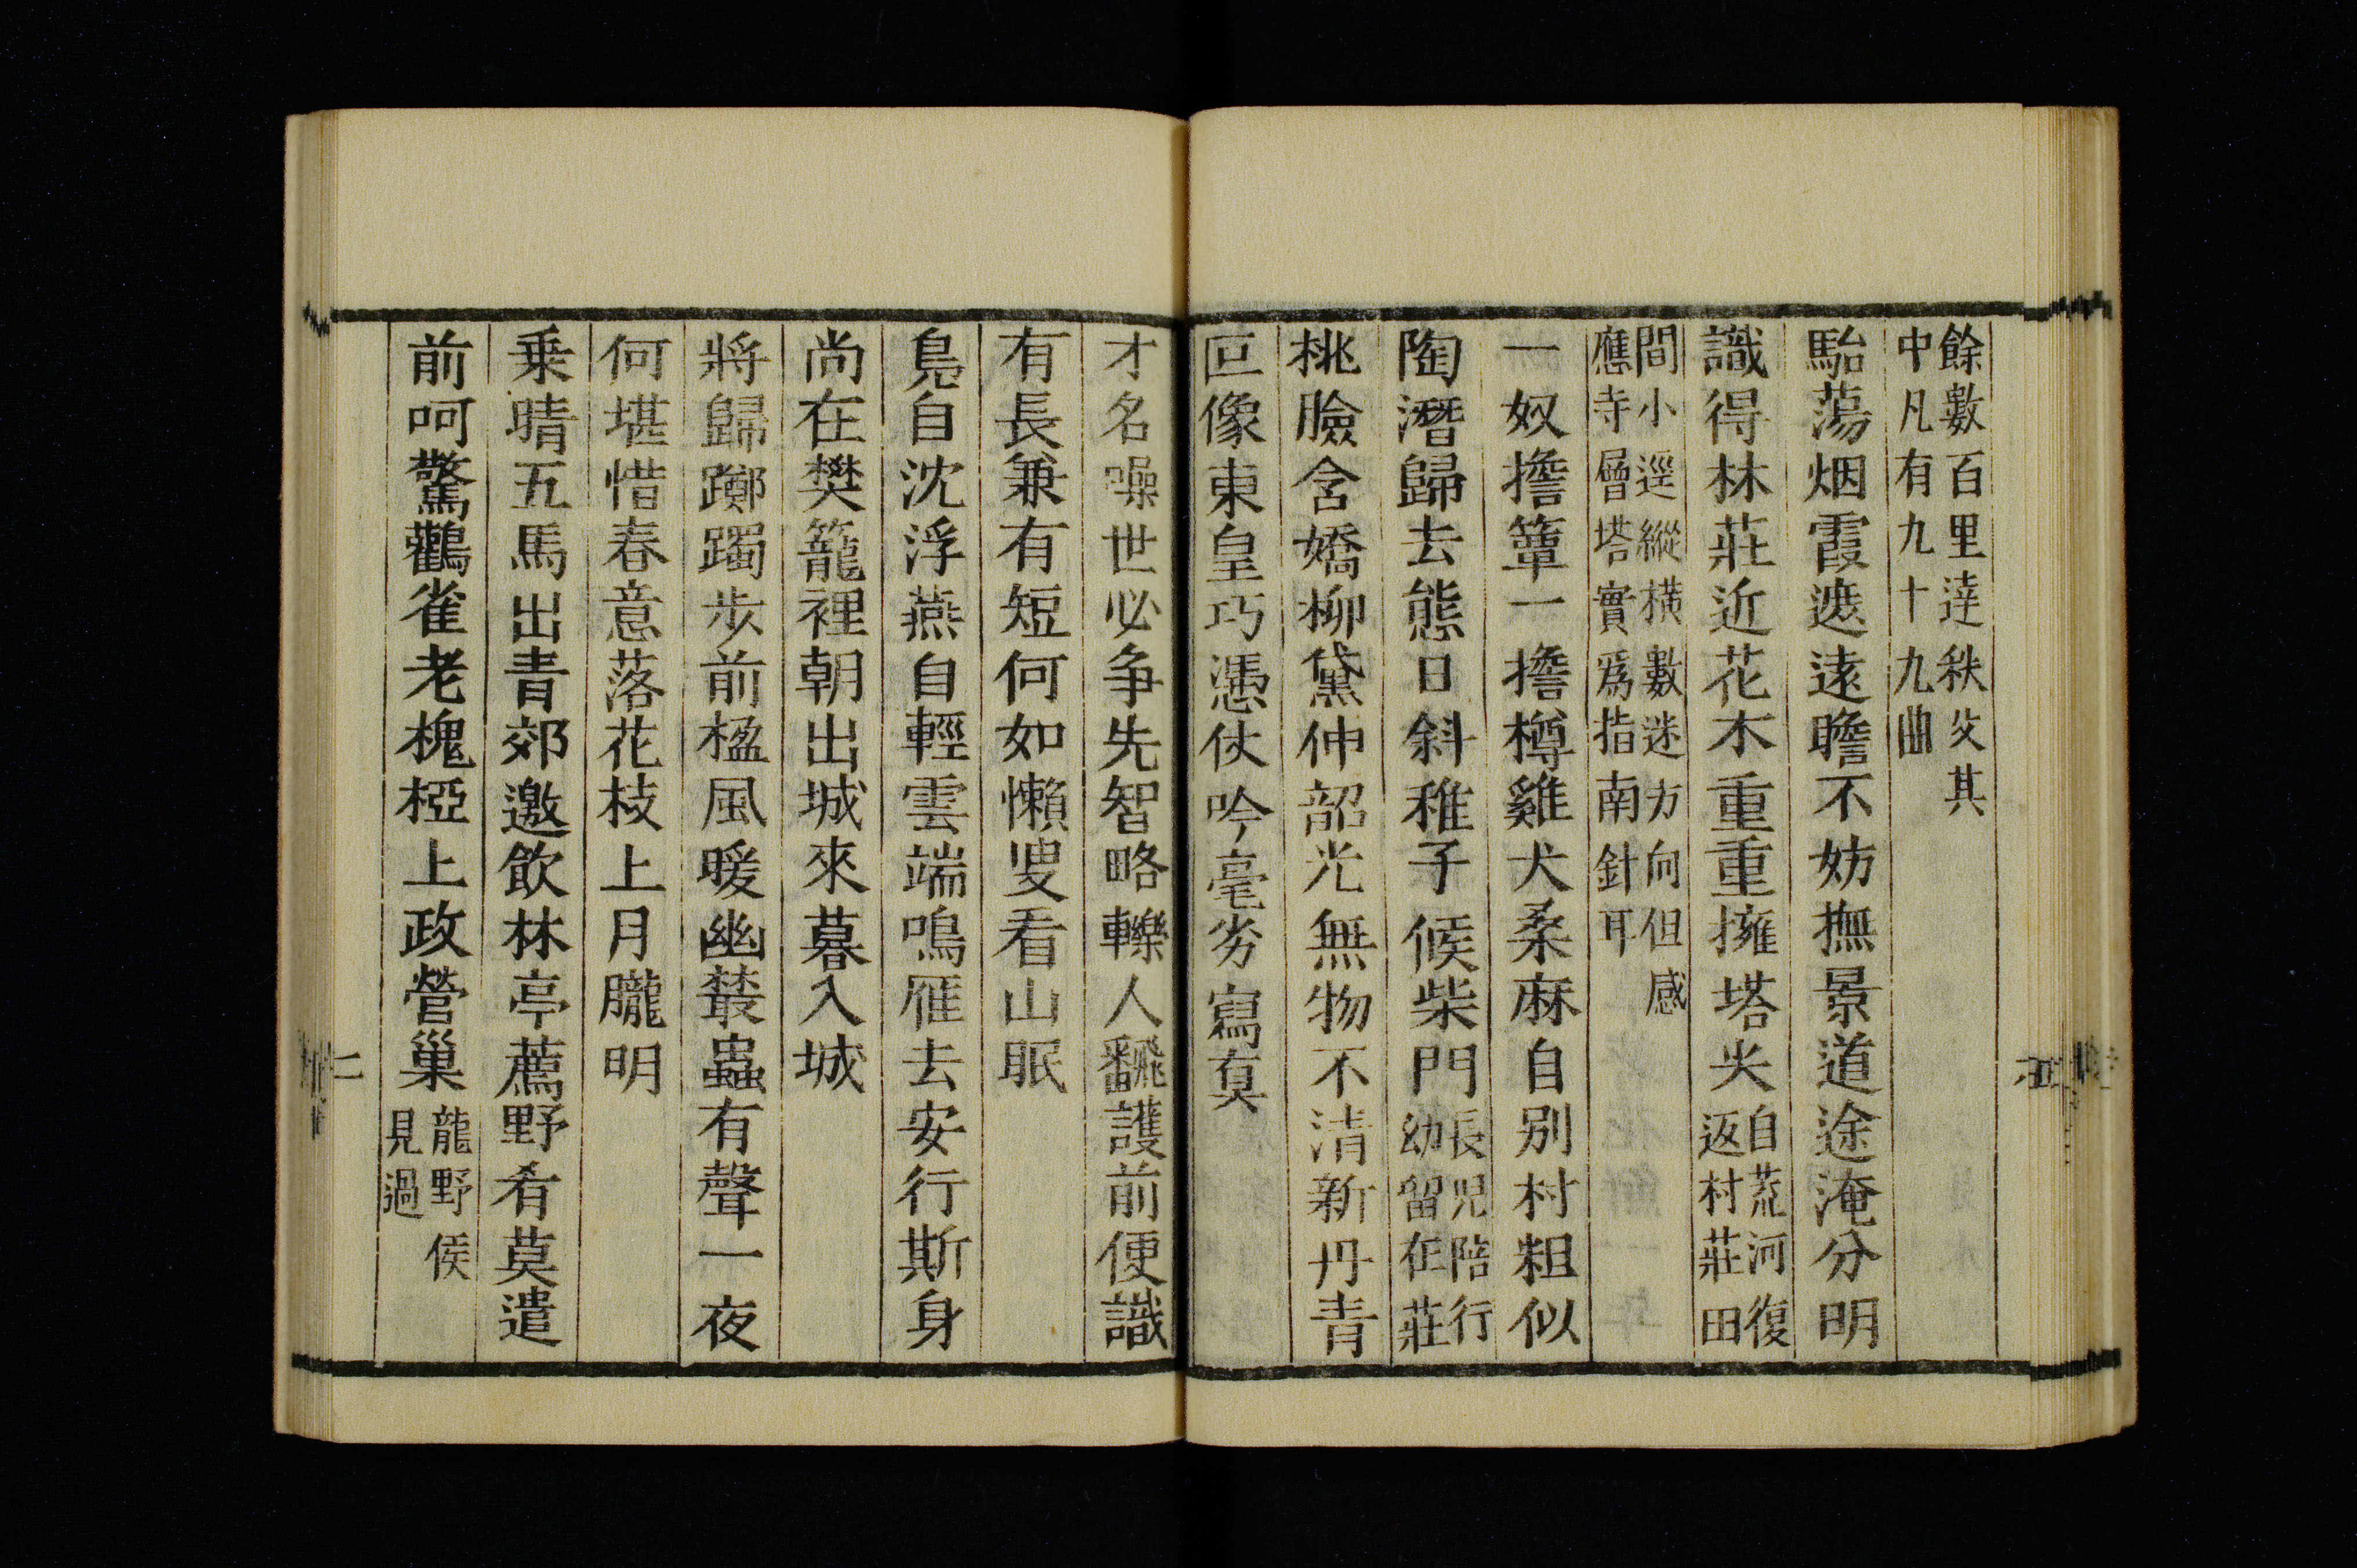 餘數百里達秩父其
中凡有九十九曲
駘蕩烟霞遮遠瞻不妨撫景道途淹分明
識得林莊近花木重重擁塔尖
自荒河復
返村莊田
間小逕縱橫數迷方向但感
應寺層塔實爲指南針耳
一奴擔簟一擔樽雞犬桑麻自別村粗似
陶潛歸去態日斜稚子候柴門
長児陪行
幼留在莊
桃臉含嬌柳黛伸韶光無物不清新丹青
叵像東皇巧憑仗吟毫劣寫眞
才名噪世必爭先智略轢人飜護前便識
有長兼有短何如懶叟看山眠
鳧自沈浮燕自輕雲端鳴雁去安行斯身
尚在樊籠裡朝出城來暮入城
將歸躑躅步前楹風暖幽叢蟲有聲一夜
何堪惜春意落花枝上月朧明
乗晴五馬出青郊邀飲林亭薦野肴莫遣
前呵驚鸛雀老槐椏上政營巢
龍野侯
見過
二